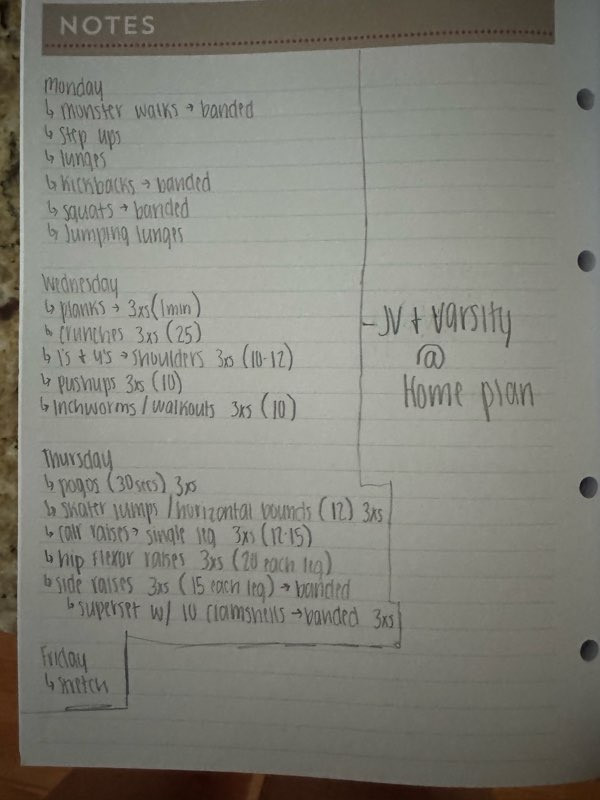 NOTES
Monday
↳ monster walks → banded
↳ Step ups
↳ lunges
↳ Kickbacks → banded
↳ squats → banded
↳ Jumping lunges
Wednesday
↳ planks → 3xs (1min)
↳ crunches 3xs (25)
↳ I's + Y's → shoulders 3xs (10-12)
↳ pushups 3xs (10)
↳ Inchworms / walkouts 3xs (10)
Thursday
↳ pogos (30secs) 3xs
↳ skater jumps / horizontal bounds (12) 3xs
↳ calf raises → single leg 3xs (12-15)
↳ hip flexor raises 3xs (20 each leg)
↳ side raises 3xs (15 each leg) → banded
↳ superset w/ 10 clamshells → banded 3xs
Friday
↳ stretch
- JV + Varsity
@
Home plan